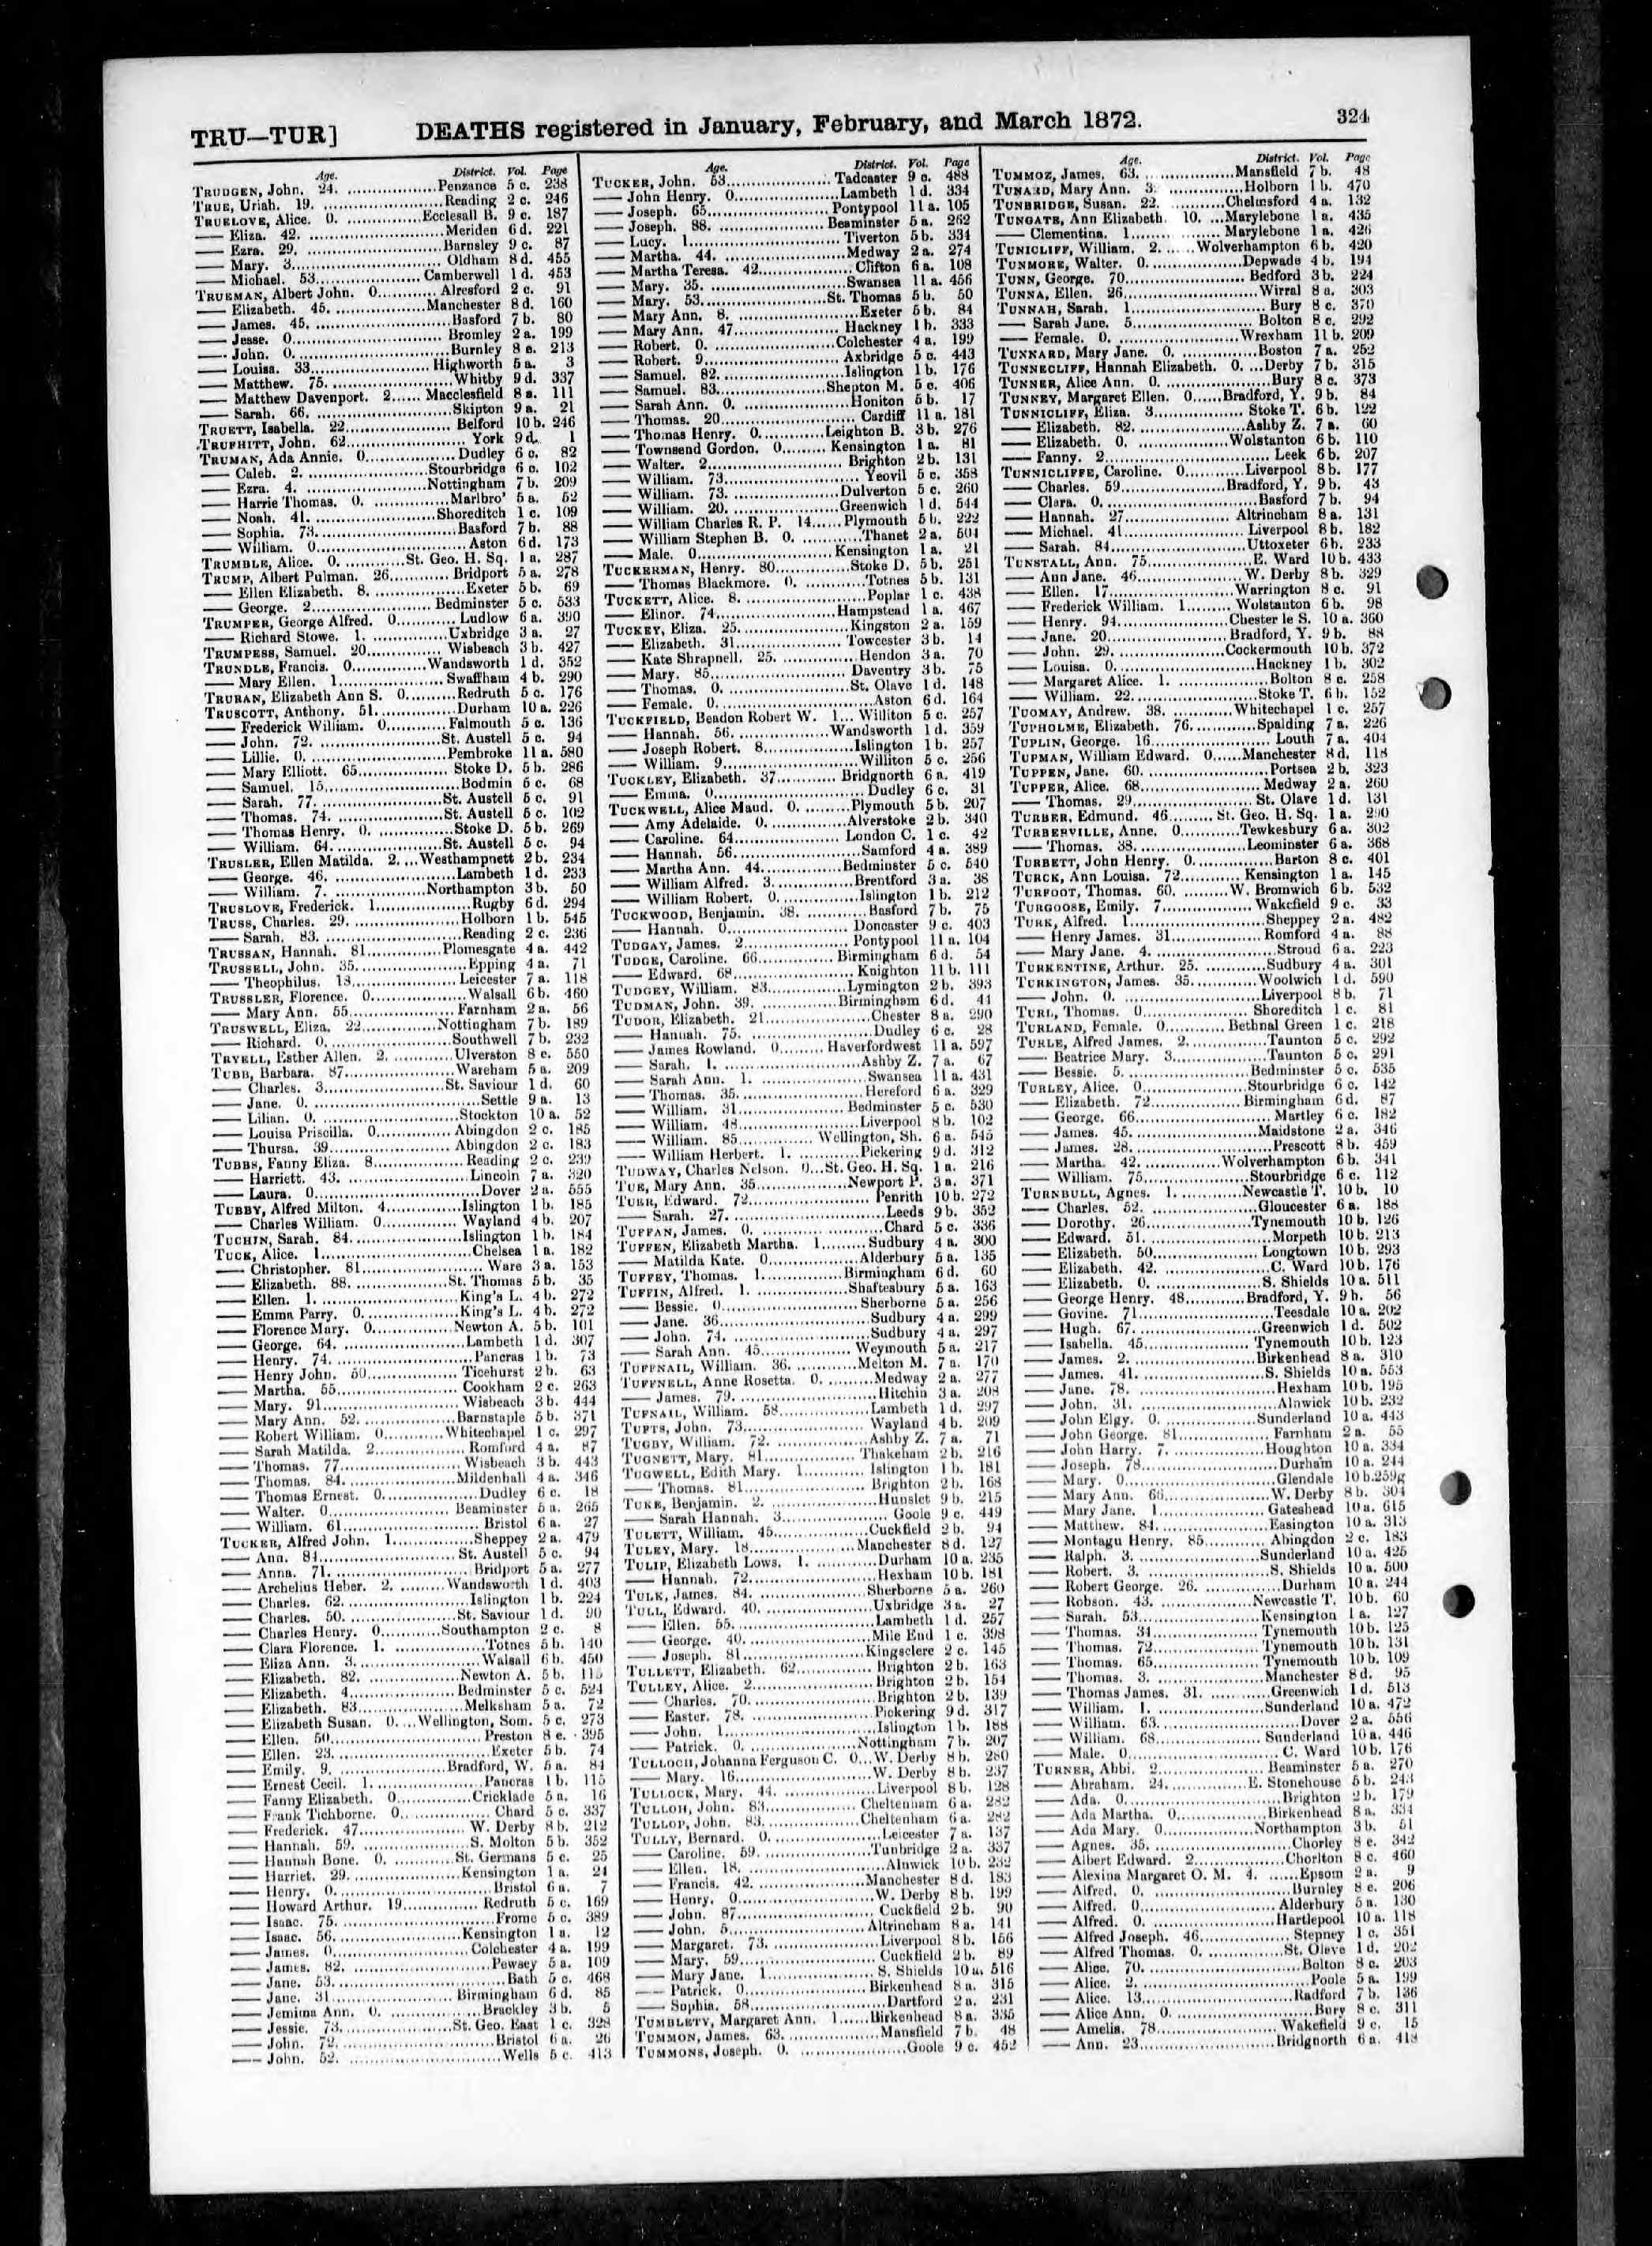 TRU—TUR] DEATHS registered in January, February, and March 1872. 324
Age. District. Vol. Page
TRUDGEN, John. 24. Penzance 5 c. 238
TRUE, Uriah. 19. Reading 2 c. 246
TRUELOVE, Alice. 0. Ecclesall B. 9 c. 187
—— Eliza. 42. Meriden 6 d. 221
—— Ezra. 29. Barnsley 9 c. 87
—— Mary. 3. Oldham 8 d. 455
—— Michael. 53. Camberwell 1 d. 453
TRUEMAN, Albert John. 0. Alresford 2 c. 91
—— Elizabeth. 45. Manchester 8 d. 160
—— James. 45. Basford 7 b. 80
—— Jesse. 0. Bromley 2 a. 199
—— John. 0. Burnley 8 e. 213
—— Louisa. 33. Highworth 5 a. 3
—— Matthew. 75. Whitby 9 d. 337
—— Matthew Davenport. 2. Macclesfield 8 a. 111
—— Sarah. 66. Skipton 9 a. 21
TRUETT, Isabella. 22. Belford 10 b. 246
TRUFHITT, John. 62. York 9 d. 1
TRUMAN, Ada Annie. 0. Dudley 6 c. 82
—— Caleb. 2. Stourbridge 6 c. 102
—— Ezra. 4. Nottingham 7 b. 209
—— Harrie Thomas. 0. Marlbro' 5 a. 52
—— Noah. 41. Shoreditch 1 c. 109
—— Sophia. 73. Basford 7 b. 88
—— William. 0. Aston 6 d. 173
TRUMBLE, Alice. 0. St. Geo. H. Sq. 1 a. 287
TRUMP, Albert Pulman. 26. Bridport 5 a. 278
—— Ellen Elizabeth. 8. Exeter 5 b. 69
—— George. 2. Bedminster 5 c. 533
TRUMPER, George Alfred. 0. Ludlow 6 a. 390
—— Richard Stowe. 1. Uxbridge 3 a. 27
TRUMPESS, Samuel. 20. Wisbeach 3 b. 427
TRUNDLE, Francis. 0. Wandsworth 1 d. 352
—— Mary Ellen. 1. Swaffham 4 b. 290
TRURAN, Elizabeth Ann S. 0. Redruth 5 c. 176
TRUSCOTT, Anthony. 51. Durham 10 a. 226
—— Frederick William. 0. Falmouth 5 c. 136
—— John. 72. St. Austell 5 c. 94
—— Lillie. 0. Pembroke 11 a. 580
—— Mary Elliott. 65. Stoke D. 5 b. 286
—— Samuel. 15. Bodmin 5 c. 68
—— Sarah. 77. St. Austell 5 c. 91
—— Thomas. 74. St. Austell 5 c. 102
—— Thomas Henry. 0. Stoke D. 5 b. 269
—— William. 64. St. Austell 5 c. 94
TRUSLER, Ellen Matilda. 2. Westhampnett 2 b. 234
—— George. 46. Lambeth 1 d. 233
—— William. 7. Northampton 3 b. 50
TRUSLOVE, Frederick. 1. Rugby 6 d. 294
TRUSS, Charles. 29. Holborn 1 b. 545
—— Sarah. 83. Reading 2 c. 236
TRUSSAN, Hannah. 81. Plomesgate 4 a. 442
TRUSSELL, John. 35. Epping 4 a. 71
—— Theophilus. 13. Leicester 7 a. 118
TRUSSLER, Florence. 0. Walsall 6 b. 460
—— Mary Ann. 55. Farnham 2 a. 56
TRUSWELL, Eliza. 22. Nottingham 7 b. 189
—— Richard. 0. Southwell 7 b. 232
TRYELL, Esther Allen. 2. Ulverston 8 e. 550
TUBB, Barbara. 87. Wareham 5 a. 209
—— Charles. 3. St. Saviour 1 d. 60
—— Jane. 0. Settle 9 a. 13
—— Lilian. 0. Stockton 10 a. 52
—— Louisa Priscilla. 0. Abingdon 2 c. 185
—— Thursa. 39. Abingdon 2 c. 183
TUBBS, Fanny Eliza. 8. Reading 2 c. 239
—— Harriett. 43. Lincoln 7 a. 320
—— Laura. 0. Dover 2 a. 555
TUBBY, Alfred Milton. 4. Islington 1 b. 185
—— Charles William. 0. Wayland 4 b. 207
TUCHIN, Sarah. 84. Islington 1 b. 184
TUCK, Alice. 1. Chelsea 1 a. 182
—— Christopher. 81. Ware 3 a. 153
—— Elizabeth. 88. St. Thomas 5 b. 35
—— Ellen. 1. King's L. 4 b. 272
—— Emma Parry. 0. King's L. 4 b. 272
—— Florence Mary. 0. Newton A. 5 b. 101
—— George. 64. Lambeth 1 d. 307
—— Henry. 74. Pancras 1 b. 73
—— Henry John. 50. Ticehurst 2 b. 63
—— Martha. 55. Cookham 2 c. 263
—— Mary. 91. Wisbeach 3 b. 444
—— Mary Ann. 52. Barnstaple 5 b. 371
—— Robert William. 0. Whitechapel 1 c. 297
—— Sarah Matilda. 2. Romford 4 a. 87
—— Thomas. 77. Wisbeach 3 b. 443
—— Thomas. 84. Mildenhall 4 a. 346
—— Thomas Ernest. 0. Dudley 6 c. 18
—— Walter. 0. Beaminster 5 a. 265
—— William. 61. Bristol 6 a. 27
TUCKER, Alfred John. 1. Sheppey 2 a. 479
—— Ann. 84. St. Austell 5 c. 94
—— Anna. 71. Bridport 5 a. 277
—— Archelius Heber. 2. Wandsworth 1 d. 403
—— Charles. 62. Islington 1 b. 224
—— Charles. 50. St. Saviour 1 d. 90
—— Charles Henry. 0. Southampton 2 c. 8
—— Clara Florence. 1. Totnes 5 b. 140
—— Eliza Ann. 3. Walsall 6 b. 450
—— Elizabeth. 82. Newton A. 5 b.
—— Elizabeth. 4. Bedminster 5 c. 524
—— Elizabeth. 83. Melksham 5 a. 72
—— Elizabeth Susan. 0. Wellington, Som. 5 c. 273
—— Ellen. 50. Preston 8 e. 395
—— Ellen. 23. Exeter 5 b. 74
—— Emily. 9. Bradford, W. 5 a. 84
—— Ernest Cecil. 1. Pancras 1 b. 115
—— Fanny Elizabeth. 0. Cricklade 5 a. 16
—— Frank Tichborne. 0. Chard 5 c. 337
—— Frederick. 47. W. Derby 8 b. 212
—— Hannah. 59. S. Molton 5 b. 352
—— Hannah Bone. 0. St. Germans 5 c. 25
—— Harriet. 29. Kensington 1 a. 24
—— Henry. 0. Bristol 6 a. 7
—— Howard Arthur. 19. Redruth 5 c. 169
—— Isaac. 75. Frome 5 c. 389
—— Isaac. 56. Kensington 1 a. 12
—— James. 0. Colchester 4 a. 199
—— James. 82. Pewsey 5 a. 109
—— Jane. 53. Bath 5 c. 468
—— Jane. 31. Birmingham 6 d. 85
—— Jemima Ann. 0. Brackley 3 b. 5
—— Jessie. 73. St. Geo. East 1 c. 328
—— John. 72. Bristol 6 a. 26
—— John. 52. Wells 5 c. 413
Age. District. Vol. Page
TUCKER, John. 53. Tadcaster 9 c. 488
—— John Henry. 0. Lambeth 1 d. 334
—— Joseph. 65. Pontypool 11 a. 105
—— Joseph. 88. Beaminster 5 a. 262
—— Lucy. 1. Tiverton 5 b. 334
—— Martha. 44. Medway 2 a. 274
—— Martha Teresa. 42. Clifton 6 a. 108
—— Mary. 35. Swansea 11 a. 456
—— Mary. 53. St. Thomas 5 b. 50
—— Mary Ann. 8. Exeter 5 b. 84
—— Mary Ann. 47. Hackney 1 b. 333
—— Robert. 0. Colchester 4 a. 199
—— Robert. 9. Axbridge 5 c. 443
—— Samuel. 82. Islington 1 b. 176
—— Samuel. 83. Shepton M. 5 c. 406
—— Sarah Ann. 0. Honiton 5 b. 17
—— Thomas. 20. Cardiff 11 a. 181
—— Thomas Henry. 0. Leighton B. 3 b. 276
—— Townsend Gordon. 0. Kensington 1 a. 81
—— Walter. 2. Brighton 2 b. 131
—— William. 73. Yeovil 5 c. 358
—— William. 73. Dulverton 5 c. 260
—— William. 20. Greenwich 1 d. 544
—— William Charles R. P. 14. Plymouth 5 b. 222
—— William Stephen B. 0. Thanet 2 a. 504
—— Male. 0. Kensington 1 a. 21
TUCKERMAN, Henry. 80. Stoke D. 5 b. 251
—— Thomas Blackmore. 0. Totnes 5 b. 131
TUCKETT, Alice. 8. Poplar 1 c. 438
—— Elinor. 74. Hampstead 1 a. 467
TUCKEY, Eliza. 25. Kingston 2 a. 159
—— Elizabeth. 31. Towcester 3 b. 14
—— Kate Shrapnell. 25. Hendon 3 a. 70
—— Mary. 85. Daventry 3 b. 75
—— Thomas. 0. St. Olave 1 d. 148
—— Female. 0. Aston 6 d. 164
TUCKFIELD, Beadon Robert W. 1. Williton 5 c. 257
—— Hannah. 56. Wandsworth 1 d. 359
—— Joseph Robert. 8. Islington 1 b. 257
—— William. 9. Williton 5 c. 256
TUCKLEY, Elizabeth. 37. Bridgnorth 6 a. 419
—— Emma. 0. Dudley 6 c. 31
TUCKWELL, Alice Maud. 0. Plymouth 5 b. 207
—— Amy Adelaide. 0. Alverstoke 2 b. 340
—— Caroline. 64. London C. 1 c. 42
—— Hannah. 56. Samford 4 a. 389
—— Martha Ann. 44. Bedminster 5 c. 540
—— William Alfred. 3. Brentford 3 a. 38
—— William Robert. 0. Islington 1 b. 212
TUCKWOOD, Benjamin. 38. Basford 7 b. 75
—— Hannah. 0. Doncaster 9 c. 403
TUDGAY, James. 2. Pontypool 11 a. 104
TUDGE, Caroline. 66. Birmingham 6 d. 54
—— Edward. 68. Knighton 11 b. 111
TUDGEY, William. 83. Lymington 2 b. 393
TUDMAN, John. 39. Birmingham 6 d. 41
TUDOR, Elizabeth. 21. Chester 8 a. 290
—— Hannah. 75. Dudley 6 c. 28
—— James Rowland. 0. Haverfordwest 11 a. 597
—— Sarah. 1. Ashby Z. 7 a. 67
—— Sarah Ann. 1. Swansea 11 a. 431
—— Thomas. 35. Hereford 6 a. 329
—— William. 31. Bedminster 5 c. 530
—— William. 48. Liverpool 8 b. 102
—— William. 85. Wellington, Sh. 6 a. 545
—— William Herbert. 1. Pickering 9 d. 312
TUDWAY, Charles Nelson. 0. St. Geo. H. Sq. 1 a. 216
TUE, Mary Ann. 35. Newport P. 3 a. 371
TUER, Edward. 72. Penrith 10 b. 272
—— Sarah. 27. Leeds 9 b. 352
TUFFAN, James. 0. Chard 5 c. 336
TUFFEN, Elizabeth Martha. 1. Sudbury 4 a. 300
—— Matilda Kate. 0. Alderbury 5 a. 135
TUFFEY, Thomas. 1. Birmingham 6 d. 60
TUFFIN, Alfred. 1. Shaftesbury 5 a. 163
—— Bessie. 0. Sherborne 5 a. 256
—— Jane. 36. Sudbury 4 a. 299
—— John. 74. Sudbury 4 a. 297
—— Sarah Ann. 45. Weymouth 5 a. 217
TUFFNAIL, William. 36. Melton M. 7 a. 170
TUFFNELL, Anne Rosetta. 0. Medway 2 a. 277
—— James. 79. Hitchin 3 a. 208
TUFNAIL, William. 58. Lambeth 1 d. 297
TUFTS, John. 73. Wayland 4 b. 209
TUGBY, William. 72. Ashby Z. 7 a. 71
TUGNETT, Mary. 81. Thakeham 2 b. 216
TUGWELL, Edith Mary. 1. Islington 1 b. 181
—— Thomas. 81. Brighton 2 b. 168
TUKE, Benjamin. 2. Hunslet 9 b. 215
—— Sarah Hannah. 3. Goole 9 c. 449
TULETT, William. 45. Cuckfield 2 b. 94
TULEY, Mary. 18. Manchester 8 d. 127
TULIP, Elizabeth Lows. 1. Durham 10 a. 235
—— Hannah. 72. Hexham 10 b. 181
TULK, James. 84. Sherborne 5 a. 260
TULL, Edward. 40. Uxbridge 3 a. 27
—— Ellen. 55. Lambeth 1 d. 257
—— George. 40. Mile End 1 c. 398
—— Joseph. 81. Kingsclere 2 c. 145
TULLETT, Elizabeth. 62. Brighton 2 b. 163
TULLEY, Alice. 2. Brighton 2 b. 154
—— Charles. 70. Brighton 2 b. 139
—— Easter. 78. Pickering 9 d. 317
—— John. 1. Islington 1 b. 188
—— Patrick. 0. Nottingham 7 b. 207
TULLOCH, Johanna Ferguson C. 0. W. Derby 8 b. 280
—— Mary. 16. W. Derby 8 b. 237
TULLOCK, Mary. 44. Liverpool 8 b. 128
TULLOH, John. 83. Cheltenham 6 a. 282
TULLOP, John. 83. Cheltenham 6 a. 282
TULLY, Bernard. 0. Leicester 7 a. 137
—— Caroline. 59. Tunbridge 2 a. 337
—— Ellen. 18. Alnwick 10 b. 232
—— Francis. 42. Manchester 8 d. 183
—— Henry. 0. W. Derby 8 b. 199
—— John. 87. Cuckfield 2 b. 90
—— John. 5. Altrincham 8 a. 141
—— Margaret. 73. Liverpool 8 b. 156
—— Mary. 59. Cuckfield 2 b. 89
—— Mary Jane. 1. S. Shields 10 a. 516
—— Patrick. 0. Birkenhead 8 a. 315
—— Sophia. 58. Dartford 2 a. 231
TUMBLETY, Margaret Ann. 1. Birkenhead 8 a. 335
TUMMON, James. 63. Mansfield 7 b. 48
TUMMONS, Joseph. 0. Goole 9 c. 452
Age. District. Vol. Page
TUMMOZ, James. 63. Mansfield 7 b. 48
TUNARD, Mary Ann. 3. Holborn 1 b. 470
TUNBRIDGE, Susan. 22. Chelmsford 4 a. 132
TUNGATE, Ann Elizabeth. 10. Marylebone 1 a. 435
—— Clementina. 1. Marylebone 1 a. 426
TUNICLIFF, William. 2. Wolverhampton 6 b. 420
TUNMORE, Walter. 0. Depwade 4 b. 194
TUNN, George. 70. Bedford 3 b. 224
TUNNA, Ellen. 26. Wirral 8 a. 303
TUNNAH, Sarah. 1. Bury 8 c. 370
—— Sarah Jane. 5. Bolton 8 c. 292
—— Female. 0. Wrexham 11 b. 209
TUNNARD, Mary Jane. 0. Boston 7 a. 252
TUNNECLIFF, Hannah Elizabeth. 0. Derby 7 b. 315
TUNNER, Alice Ann. 0. Bury 8 c. 373
TUNNEY, Margaret Ellen. 0. Bradford, Y. 9 b. 84
TUNNICLIFF, Eliza. 3. Stoke T. 6 b. 122
—— Elizabeth. 82. Ashby Z. 7 a. 60
—— Elizabeth. 0. Wolstanton 6 b. 110
—— Fanny. 2. Leek 6 b. 207
TUNNICLIFFE, Caroline. 0. Liverpool 8 b. 177
—— Charles. 59. Bradford, Y. 9 b. 43
—— Clara. 0. Basford 7 b. 94
—— Hannah. 27. Altrincham 8 a. 131
—— Michael. 41. Liverpool 8 b. 182
—— Sarah. 84. Uttoxeter 6 b. 233
TUNSTALL, Ann. 75. E. Ward 10 b. 433
—— Ann Jane. 46. W. Derby 8 b. 329
—— Ellen. 17. Warrington 8 c. 91
—— Frederick William. 1. Wolstanton 6 b. 98
—— Henry. 94. Chester le S. 10 a. 360
—— Jane. 20. Bradford, Y. 9 b. 88
—— John. 29. Cockermouth 10 b. 372
—— Louisa. 0. Hackney 1 b. 302
—— Margaret Alice. 1. Bolton 8 c. 258
—— William. 22. Stoke T. 6 b. 152
TUOMAY, Andrew. 38. Whitechapel 1 c. 257
TUPHOLME, Elizabeth. 76. Spalding 7 a. 226
TUPLIN, George. 16. Louth 7 a. 404
TUPMAN, William Edward. 0. Manchester 8 d. 118
TUPPEN, Jane. 60. Portsea 2 b. 323
TUPPER, Alice. 68. Medway 2 a. 260
—— Thomas. 29. St. Olave 1 d. 131
TURBER, Edmund. 46. St. Geo. H. Sq. 1 a. 290
TURBERVILLE, Anne. 0. Tewkesbury 6 a. 302
—— Thomas. 38. Leominster 6 a. 368
TURBETT, John Henry. 0. Barton 8 c. 401
TURCK, Ann Louisa. 72. Kensington 1 a. 145
TURFOOT, Thomas. 60. W. Bromwich 6 b. 532
TURGOOSE, Emily. 7. Wakefield 9 c. 33
TURK, Alfred. 1. Sheppey 2 a. 482
—— Henry James. 31. Romford 4 a. 88
—— Mary Jane. 4. Stroud 6 a. 223
TURKENTINE, Arthur. 25. Sudbury 4 a. 301
TURKINGTON, James. 35. Woolwich 1 d. 590
—— John. 0. Liverpool 8 b. 71
TURL, Thomas. 0. Shoreditch 1 c. 81
TURLAND, Female. 0. Bethnal Green 1 c. 218
TURLE, Alfred James. 2. Taunton 5 c. 292
—— Beatrice Mary. 3. Taunton 5 c. 291
—— Bessie. 5. Bedminster 5 c. 535
TURLEY, Alice. 0. Stourbridge 6 c. 142
—— Elizabeth. 72. Birmingham 6 d. 87
—— George. 66. Martley 6 c. 182
—— James. 45. Maidstone 2 a. 346
—— James. 28. Prescott 8 b. 459
—— Martha. 42. Wolverhampton 6 b. 341
—— William. 75. Stourbridge 6 c. 112
TURNBULL, Agnes. 1. Newcastle T. 10 b. 10
—— Charles. 52. Gloucester 6 a. 188
—— Dorothy. 26. Tynemouth 10 b. 126
—— Edward. 51. Morpeth 10 b. 213
—— Elizabeth. 50. Longtown 10 b. 293
—— Elizabeth. 42. C. Ward 10 b. 176
—— Elizabeth. 0. S. Shields 10 a. 511
—— George Henry. 48. Bradford, Y. 9 b. 56
—— Govine. 71. Teesdale 10 a. 202
—— Hugh. 67. Greenwich 1 d. 502
—— Isabella. 45. Tynemouth 10 b. 123
—— James. 2. Birkenhead 8 a. 310
—— James. 41. S. Shields 10 a. 553
—— Jane. 78. Hexham 10 b. 195
—— John. 31. Alnwick 10 b. 232
—— John Elgy. 0. Sunderland 10 a. 443
—— John George. 81. Farnham 2 a. 55
—— John Harry. 7. Houghton 10 a. 334
—— Joseph. 78. Durham 10 a. 244
—— Mary. 0. Glendale 10 b. 259g
—— Mary Ann. 66. W. Derby 8 b. 304
—— Mary Jane. 1. Gateshead 10 a. 615
—— Matthew. 84. Easington 10 a. 313
—— Montagu Henry. 85. Abingdon 2 c. 183
—— Ralph. 3. Sunderland 10 a. 425
—— Robert. 3. S. Shields 10 a. 500
—— Robert George. 26. Durham 10 a. 244
—— Robson. 43. Newcastle T. 10 b. 60
—— Sarah. 53. Kensington 1 a. 127
—— Thomas. 34. Tynemouth 10 b. 125
—— Thomas. 72. Tynemouth 10 b. 131
—— Thomas. 65. Tynemouth 10 b. 109
—— Thomas. 3. Manchester 8 d. 95
—— Thomas James. 31. Greenwich 1 d. 513
—— William. 1. Sunderland 10 a. 472
—— William. 63. Dover 2 a. 556
—— William. 68. Sunderland 10 a. 446
—— Male. 0. C. Ward 10 b. 176
TURNER, Abbi. 2. Beaminster 5 a. 270
—— Abraham. 24. E. Stonehouse 5 b. 243
—— Ada. 0. Brighton 2 b. 179
—— Ada Martha. 0. Birkenhead 8 a. 334
—— Ada Mary. 0. Northampton 3 b. 51
—— Agnes. 35. Chorley 8 e. 342
—— Albert Edward. 2. Chorlton 8 c. 460
—— Alexina Margaret O. M. 4. Epsom 2 a. 9
—— Alfred. 0. Burnley 8 e. 206
—— Alfred. 0. Alderbury 5 a. 130
—— Alfred. 0. Hartlepool 10 a. 118
—— Alfred Joseph. 46. Stepney 1 c. 351
—— Alfred Thomas. 0. St. Olave 1 d. 202
—— Alice. 70. Bolton 8 c. 203
—— Alice. 2. Poole 5 a. 199
—— Alice. 13. Radford 7 b. 136
—— Alice Ann. 0. Bury 8 c. 311
—— Amelia. 78. Wakefield 9 c. 15
—— Ann. 23. Bridgnorth 6 a. 418